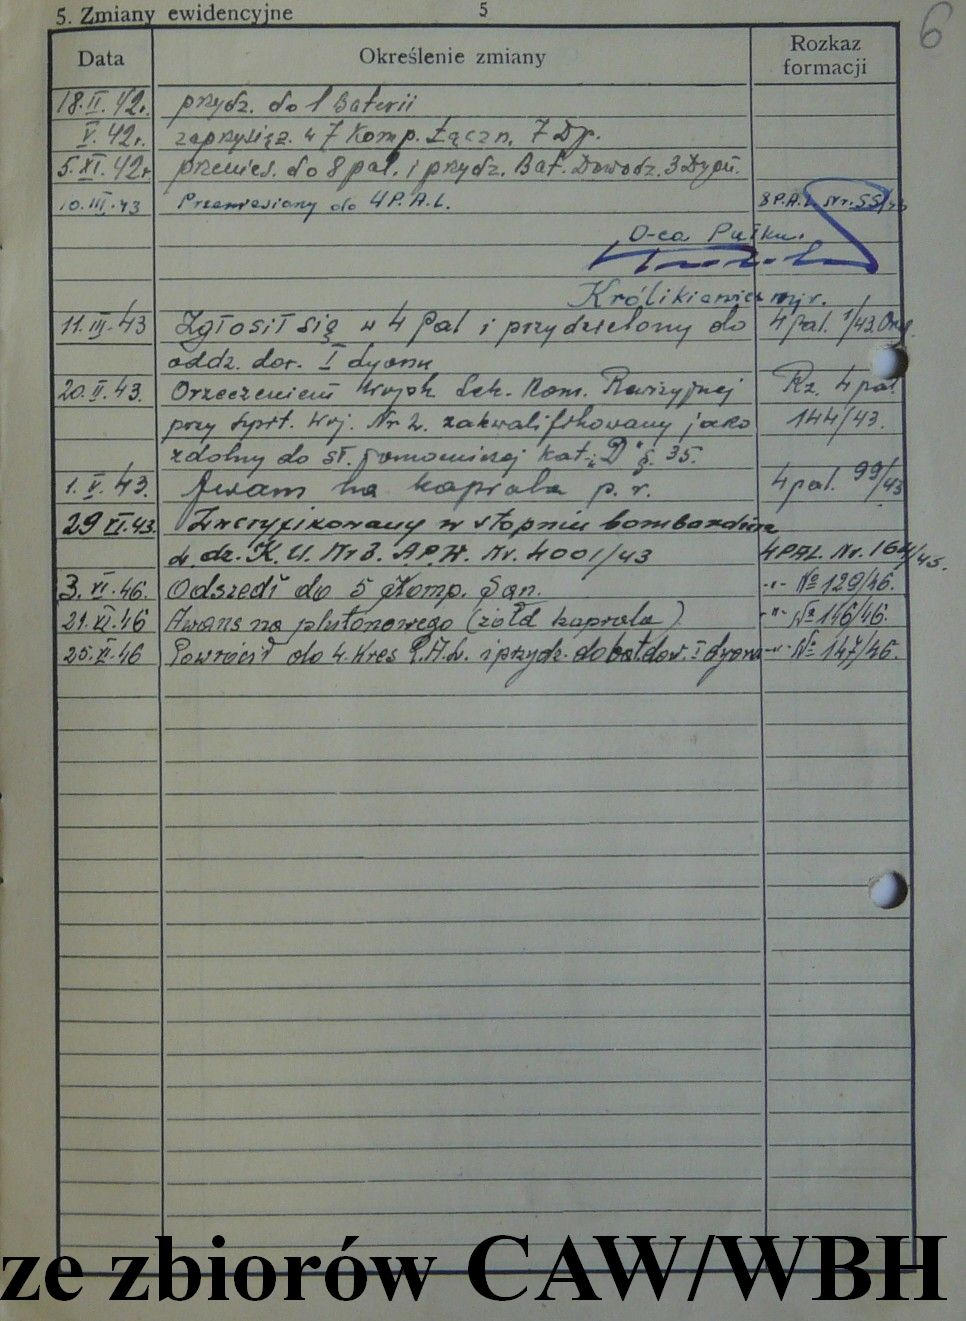 5. Zmiany ewidencyjne 5 6
Data Określenie zmiany Rozkaz formacji
18.II.42r. przydz. do 1 Baterii
V.42r. zaprzysięż. w 7 Komp. Łączn. 7 Dp.
5.XI.42r przenies. do 8 pal. i przydz. Bat. Dowodz. 3 Dyonu.
10.III.43 Przeniesiony do 4 P.A.L. 8 P.A.L. Nr. 55/43
D-ca Pułku.
Królikiewicz mjr.
11.III.43 Zgłosił się w 4 pal i przydzielony do 4 pal. 1/43.
oddz. dow. I dyonu
20.II.43. Orzeczeniem Wojsk. Lek. Kom. Rewizyjnej Rz. 4 pal
przy Szpit. Woj. Nr 2. zakwalifikowany jako 144/43.
zdolny do sł. pomocniczej kat. "D" §. 35.
1.V.43. Awans na kaprala p. r. 4 pal. 99/43
29 VI.43. Zweryfikowany w stopniu bombardiera
w dz. K.U. Nr 3. A.P.W. Nr. 4001/43 4 PAL. Nr. 164/43.
3.VI.46. Odszedł do 5 Komp. San. -"- № 129/46.
21.VI.46 Awans na plutonowego (żołd kaprala) -"- № 146/46.
25.VI.46 Powrócił do 4. Kres P.A.L. i przydz. do bat. dow. I dyonu -"- № 147/46.
ze zbiorów CAW/WBH